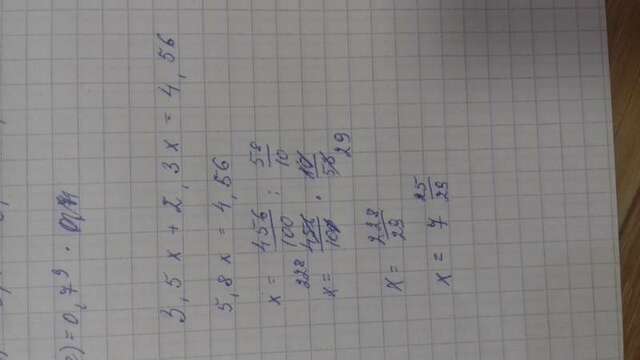 ) = 0,7⁹ ·
3,5x + 2,3x = 4,56
5,8x = 4,56
x = 456/100 : 58/10
228
x = 456/100 · 10/58
29
x = 228/29
x = 7 25/29